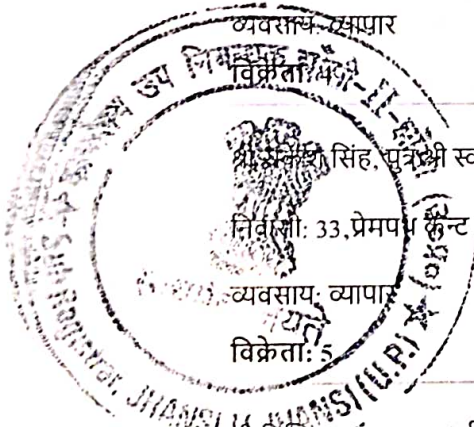 व्यवसाय: व्यापार
विक्रेता: 4
सिंह, पुत्र श्री स्व
निवासी: 33,प्रेमपथ कैन्ट
व्यवसाय: व्यापार
विक्रेता: 5
उप निबन्धक झाँसी-II-झाँसी (उ०प्र०)
Sub-Registrar, JHANSI-II, JHANSI (U.P.)